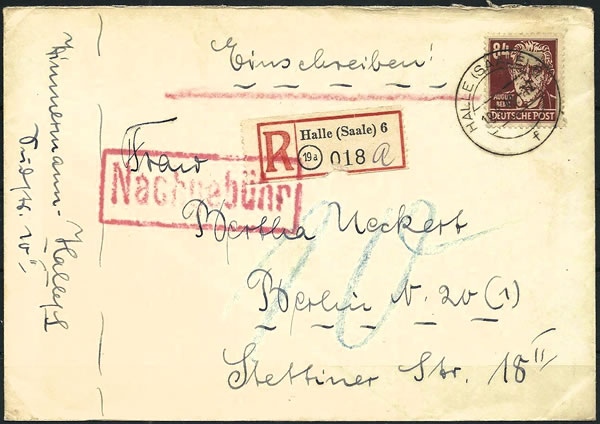 Einschreiben!
84
AUGUST
DEUTSCHE POST
HALLE (SAALE)
f
R
Halle (Saale) 6
19a 018 a
Nachgebühr
Frau
Bertha Ueckert
Berlin N. 20 (1)
Stettiner Str. 18 II
10
Zimmermann - Halle/S
20 II